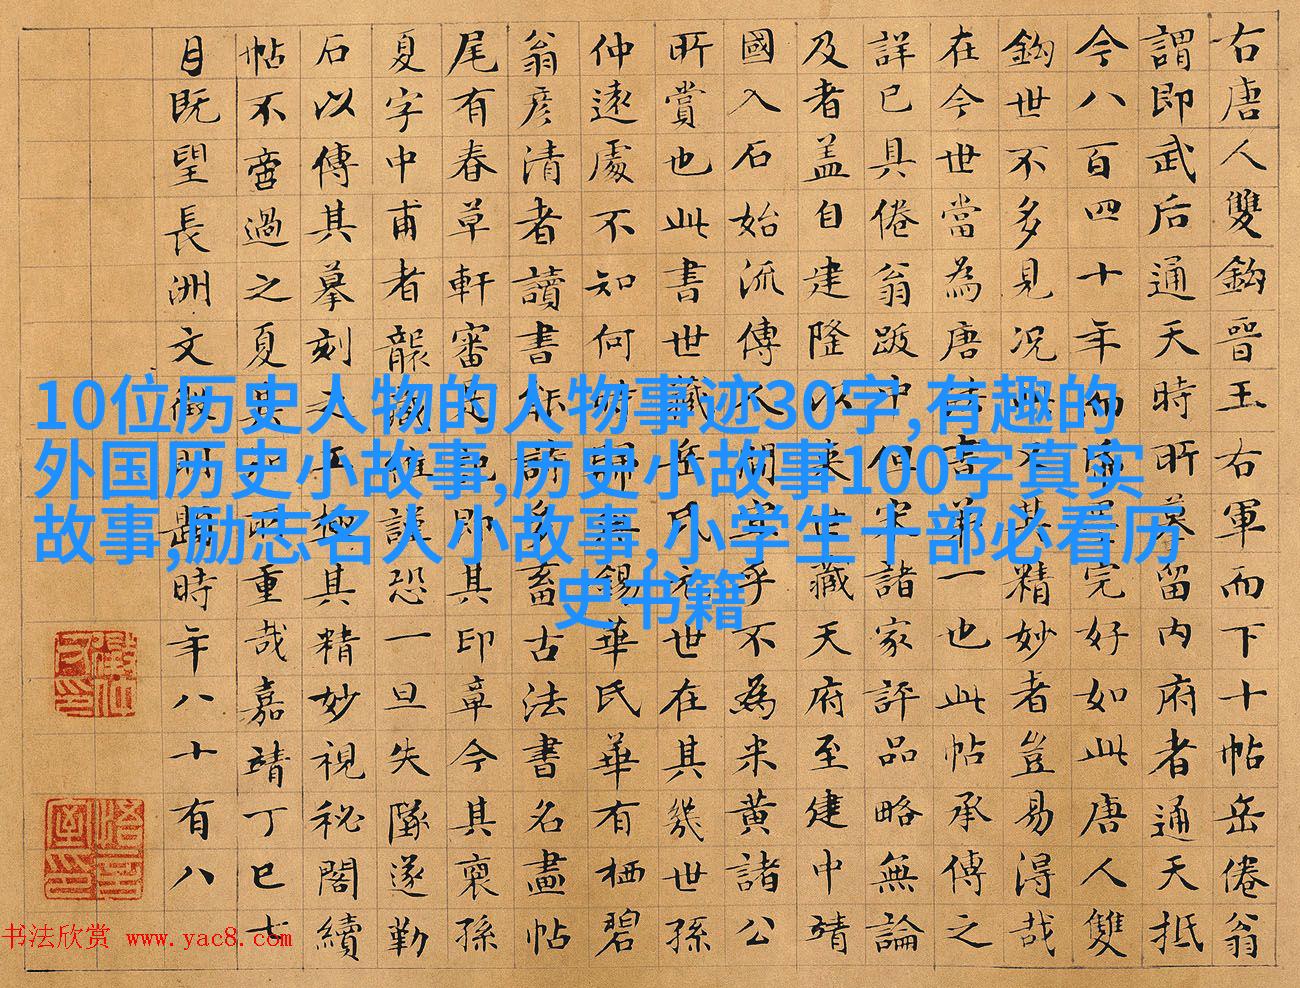 右唐人雙鈎晉王右軍而下十帖岳倦翁
謂即武后通天時所摹留內府者通天抵
今八百四十年而帋墨完好如此唐人雙
鈎世不多見况此其精妙者豈易得哉
在今世當為唐法書第一也此帖承傳之
詳已具倦翁跋中但宋諸家評品略無論
及者盖自建隆以來世藏天府至建中靖
國入石始流傳人間宜乎不為米黃諸公
所賞也此書世藏岳氏元世在其幾世孫
仲遠處不知何時歸無錫華氏華有栖碧
翁彦清者讀書能詩多畜古法書名畫帖
尾有春草軒審定記即其印章今其裔孫
夏字中甫者襲藏惟謹恐一旦失墜遂勤
石以傳其摹刻之工極其精妙視秘閣續
帖不啻過之夏其知所重哉嘉靖丁巳七
月既望長洲文徵明題時年八十有八
10位历史人物的人物事迹30字,有趣的
外国历史小故事,历史小故事100字真实
故事,励志名人小故事,小学生十部必看历
史书籍
书法欣赏 www.yac8.com